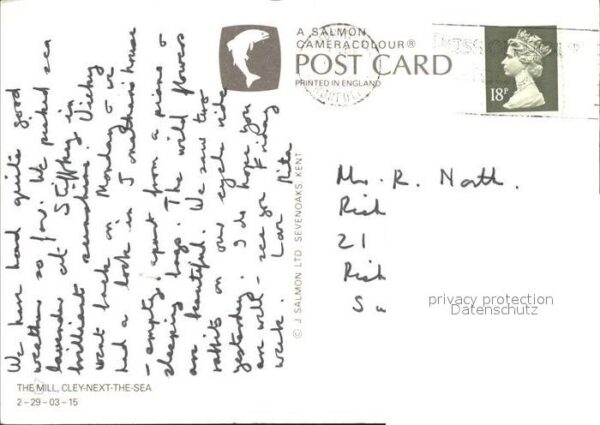 A SALMON
CAMERACOLOUR®
POST CARD
PRINTED IN ENGLAND
18P
We have had quite good
weather so far. We picked sea
lavender at Stiffkey in
brilliant sunshine. Vicky
went back on Monday & we
had a look in Jonathan's house
- empty! apart from a piano &
sleeping bags. The wild flowers
are beautiful. We saw two
rabbits on our cycle ride
yesterday. I do hope you
are well - see you Friday
week. Love Rita
© J SALMON LTD SEVENOAKS, KENT
Mrs. R. North.
21
privacy protection
Datenschutz
THE MILL, CLEY-NEXT-THE-SEA
2-29-03-15